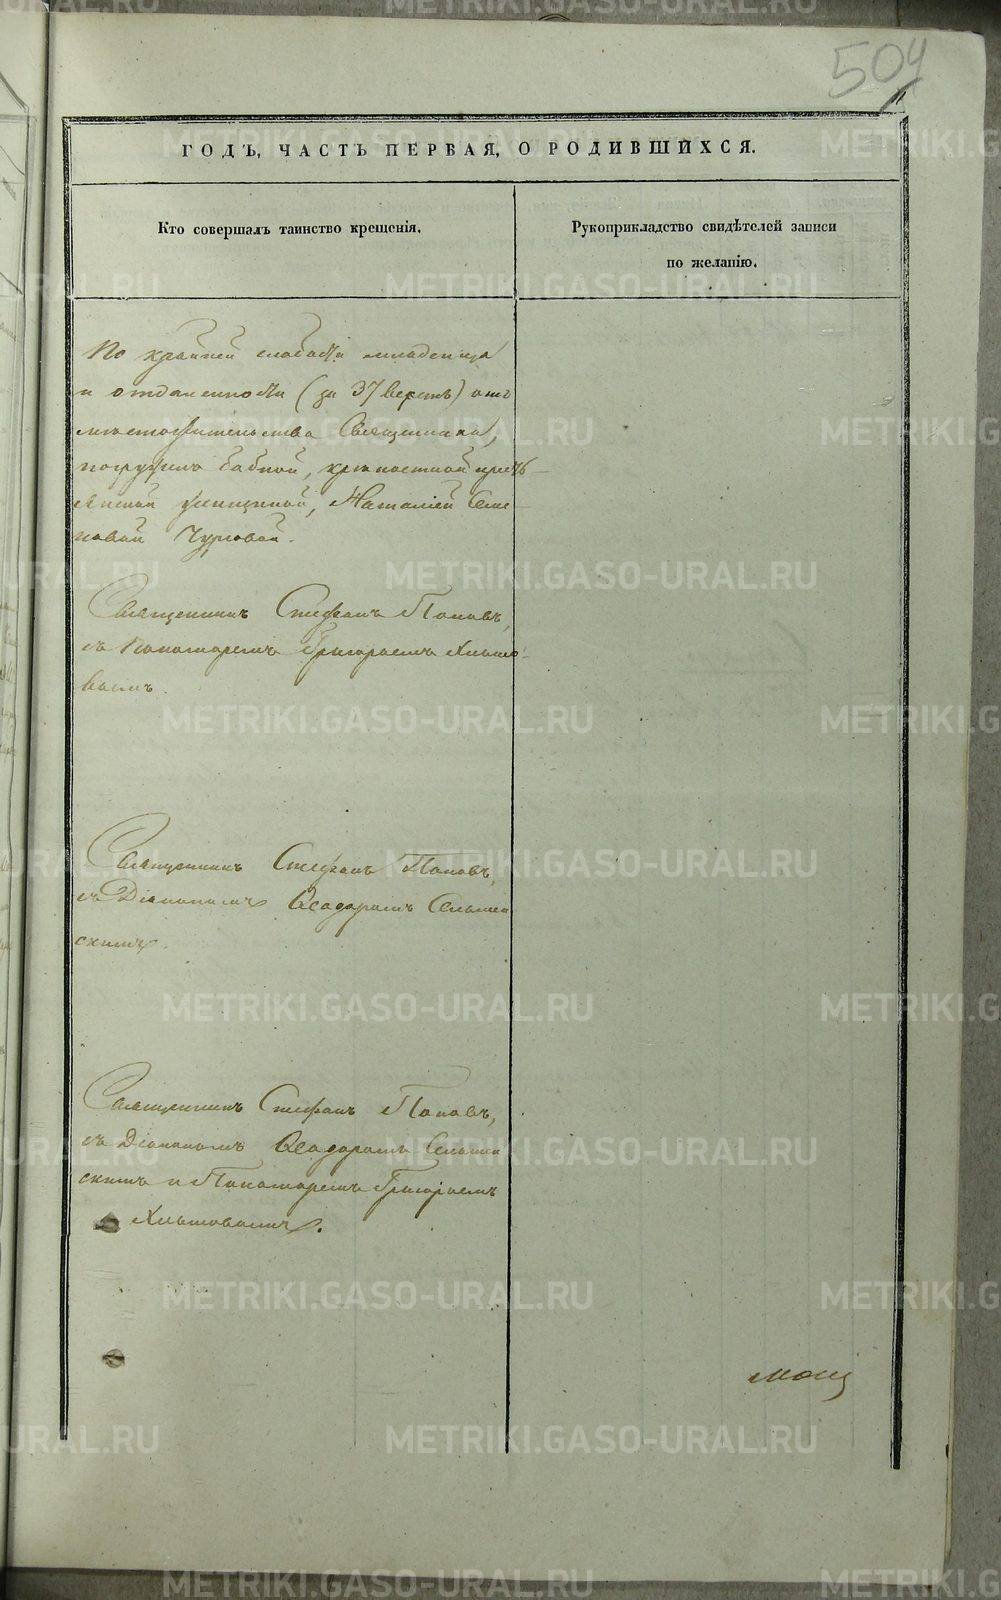 504
ГОДЪ, ЧАСТЬ ПЕРВАЯ, О РОДИВШИХСЯ.
Кто совершалъ таинство крещенія.
Рукоприкладство свидѣтелей записи
по желанію.
По крайней слабости младенца
и отдаленности (за 37 верстъ) отъ
мѣстожительства Священника,
погружено бабкой, крѣпостной кресть-
янской женщиной, Наталіей
повой
Священникъ Стефанъ Поповъ,
съ Пономаремъ Григорьемъ Хлыно-
вымъ.
Священникъ Стефанъ Поповъ,
съ Діакономъ Ѳеодоромъ
скимъ.
Священникъ Стефанъ Поповъ,
съ Діакономъ Ѳеодоромъ
скимъ и Пономаремъ Григорьемъ
Хлыновымъ.
METRIKI.GASO-URAL.RU